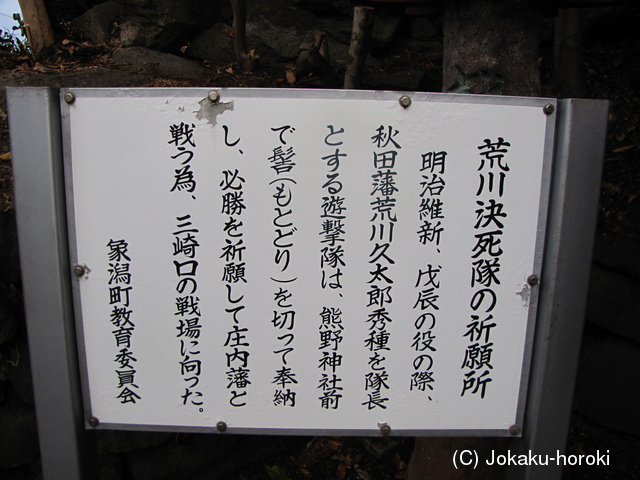 荒川決死隊の祈願所
明治維新、戊辰の役の際、
秋田藩荒川久太郎秀種を隊長
とする遊撃隊は、熊野神社前
で髻(もとどり)を切って奉納
し、必勝を祈願して庄内藩と
戦う為、三崎口の戦場に向った。
象潟町教育委員会
(C) Jokaku-horoki